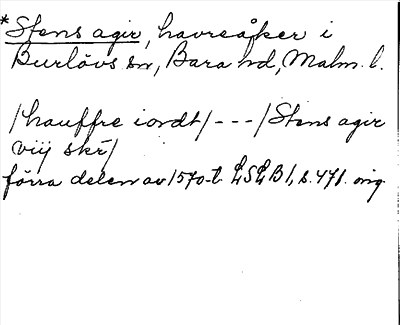 *Stens agir, havreåker i
Burlövs sn, Bara hd, Malm. l.
/hauffre iordt/ - - - /Stens agir
viij skr̄/
förra delen av 1570-t. LSLB 1, s. 471. orig.